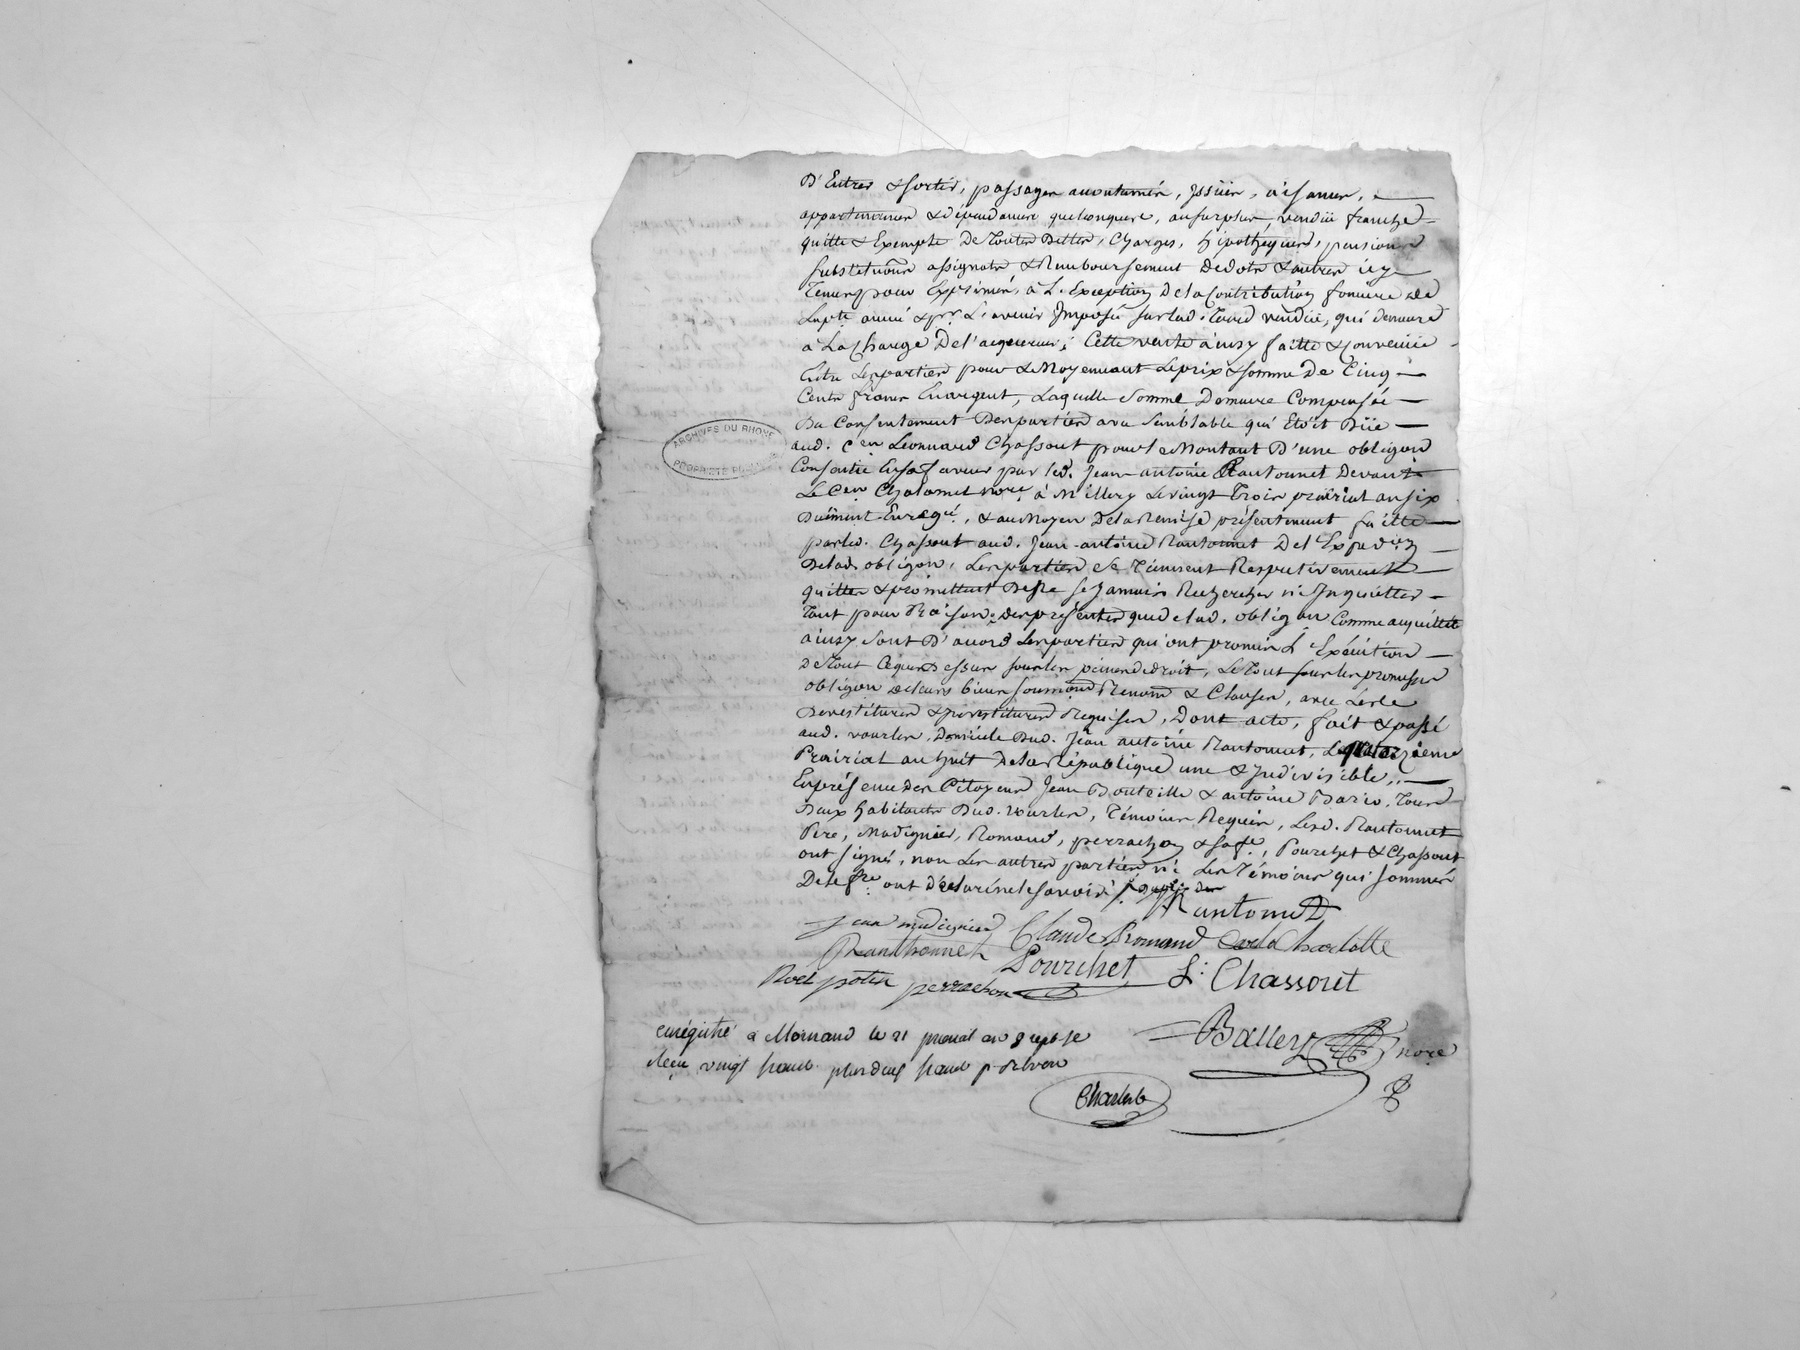 D'Entrer & sortir, passages accoutumés, Issües, aisances,
appartenances & dépendances quelconques, au surplus vendüe franche
quitte & Exempte De Toutes Dettes, Charges, hipothéques, pensions
substitutions assignats & Remboursement De dots & autres icy
Tenus pour Exprimés, à L'Exception De la Contribution fonciere de
L'hpte année & pr. L'avenir Imposée sur lad. Terre vendüe, qui demeure
à La Charge De l'acquereur; Cette vente ainsy faitte & Convenüe
Entre Les parties pour & Moyennant Le prix & somme De Cinq
Cents francs En argent, Laquelle Somme Demeure Compensée
Du Consentement Des parties avec Semblable qui Etoit Düe
aud. Cen Léonnard Chassout pour le Montant D'une obligon
Consentie En sa faveur par led. Jean antoine Rantonnet Devant
Le Cen Chalamet nore à Millery Le vingt Trois prairial an six
Düement Enregé, & au Moyen De la Remise présentement faitte
par led. Chassout aud. Jean antoine Rantonnet De l'Expedion
De lad. obligon, Les parties Se Tiennent Respectivement
quittes & promettent De Ne Se Jamais Rechercher ni Inquietter
Tant pour Raison des présentes que de lad. obligon Comme acquittée
ainsy Sont D'accord Les parties qui ont promis L'Exécution
De Tout Ce que Dessus sous les peines de droit, Le Tout sous les promesses
obligon de leurs biens soumions Renons & Clauses, avec Les
Devestitures & Investitures Requises, Dont acte, fait & passé
aud. vourles, Domicile Dud. Jean antoine Rantonnet, Le quatorzieme
Prairial an huit De la République une & Indivisible,
En présence des Citoyens Jean Bouteille & antoine Bario, Tous
Deux habitants Dud. vourles, Témoins Requis, Lesd. Rantonnet
Pere, Madignier, Romand, perrachon & sa fe, Pourchet & Chassout
ont signé, non Les autres parties ni Les Témoins qui sommés
De le fre ont déclaré ne le savoir
Rantonnet
jean madignier Claude Romand Charlotte
Ranthonnet Pourchet L: Chassout
perrachon
Ballery nore
enrégistré à Mornand le 21 prairial an 8 repbe
Reçu vingt francs plus deux francs pr
Charlet
ARCHIVES DU RHONE
PROPRIÉTÉ PUBLIQUE